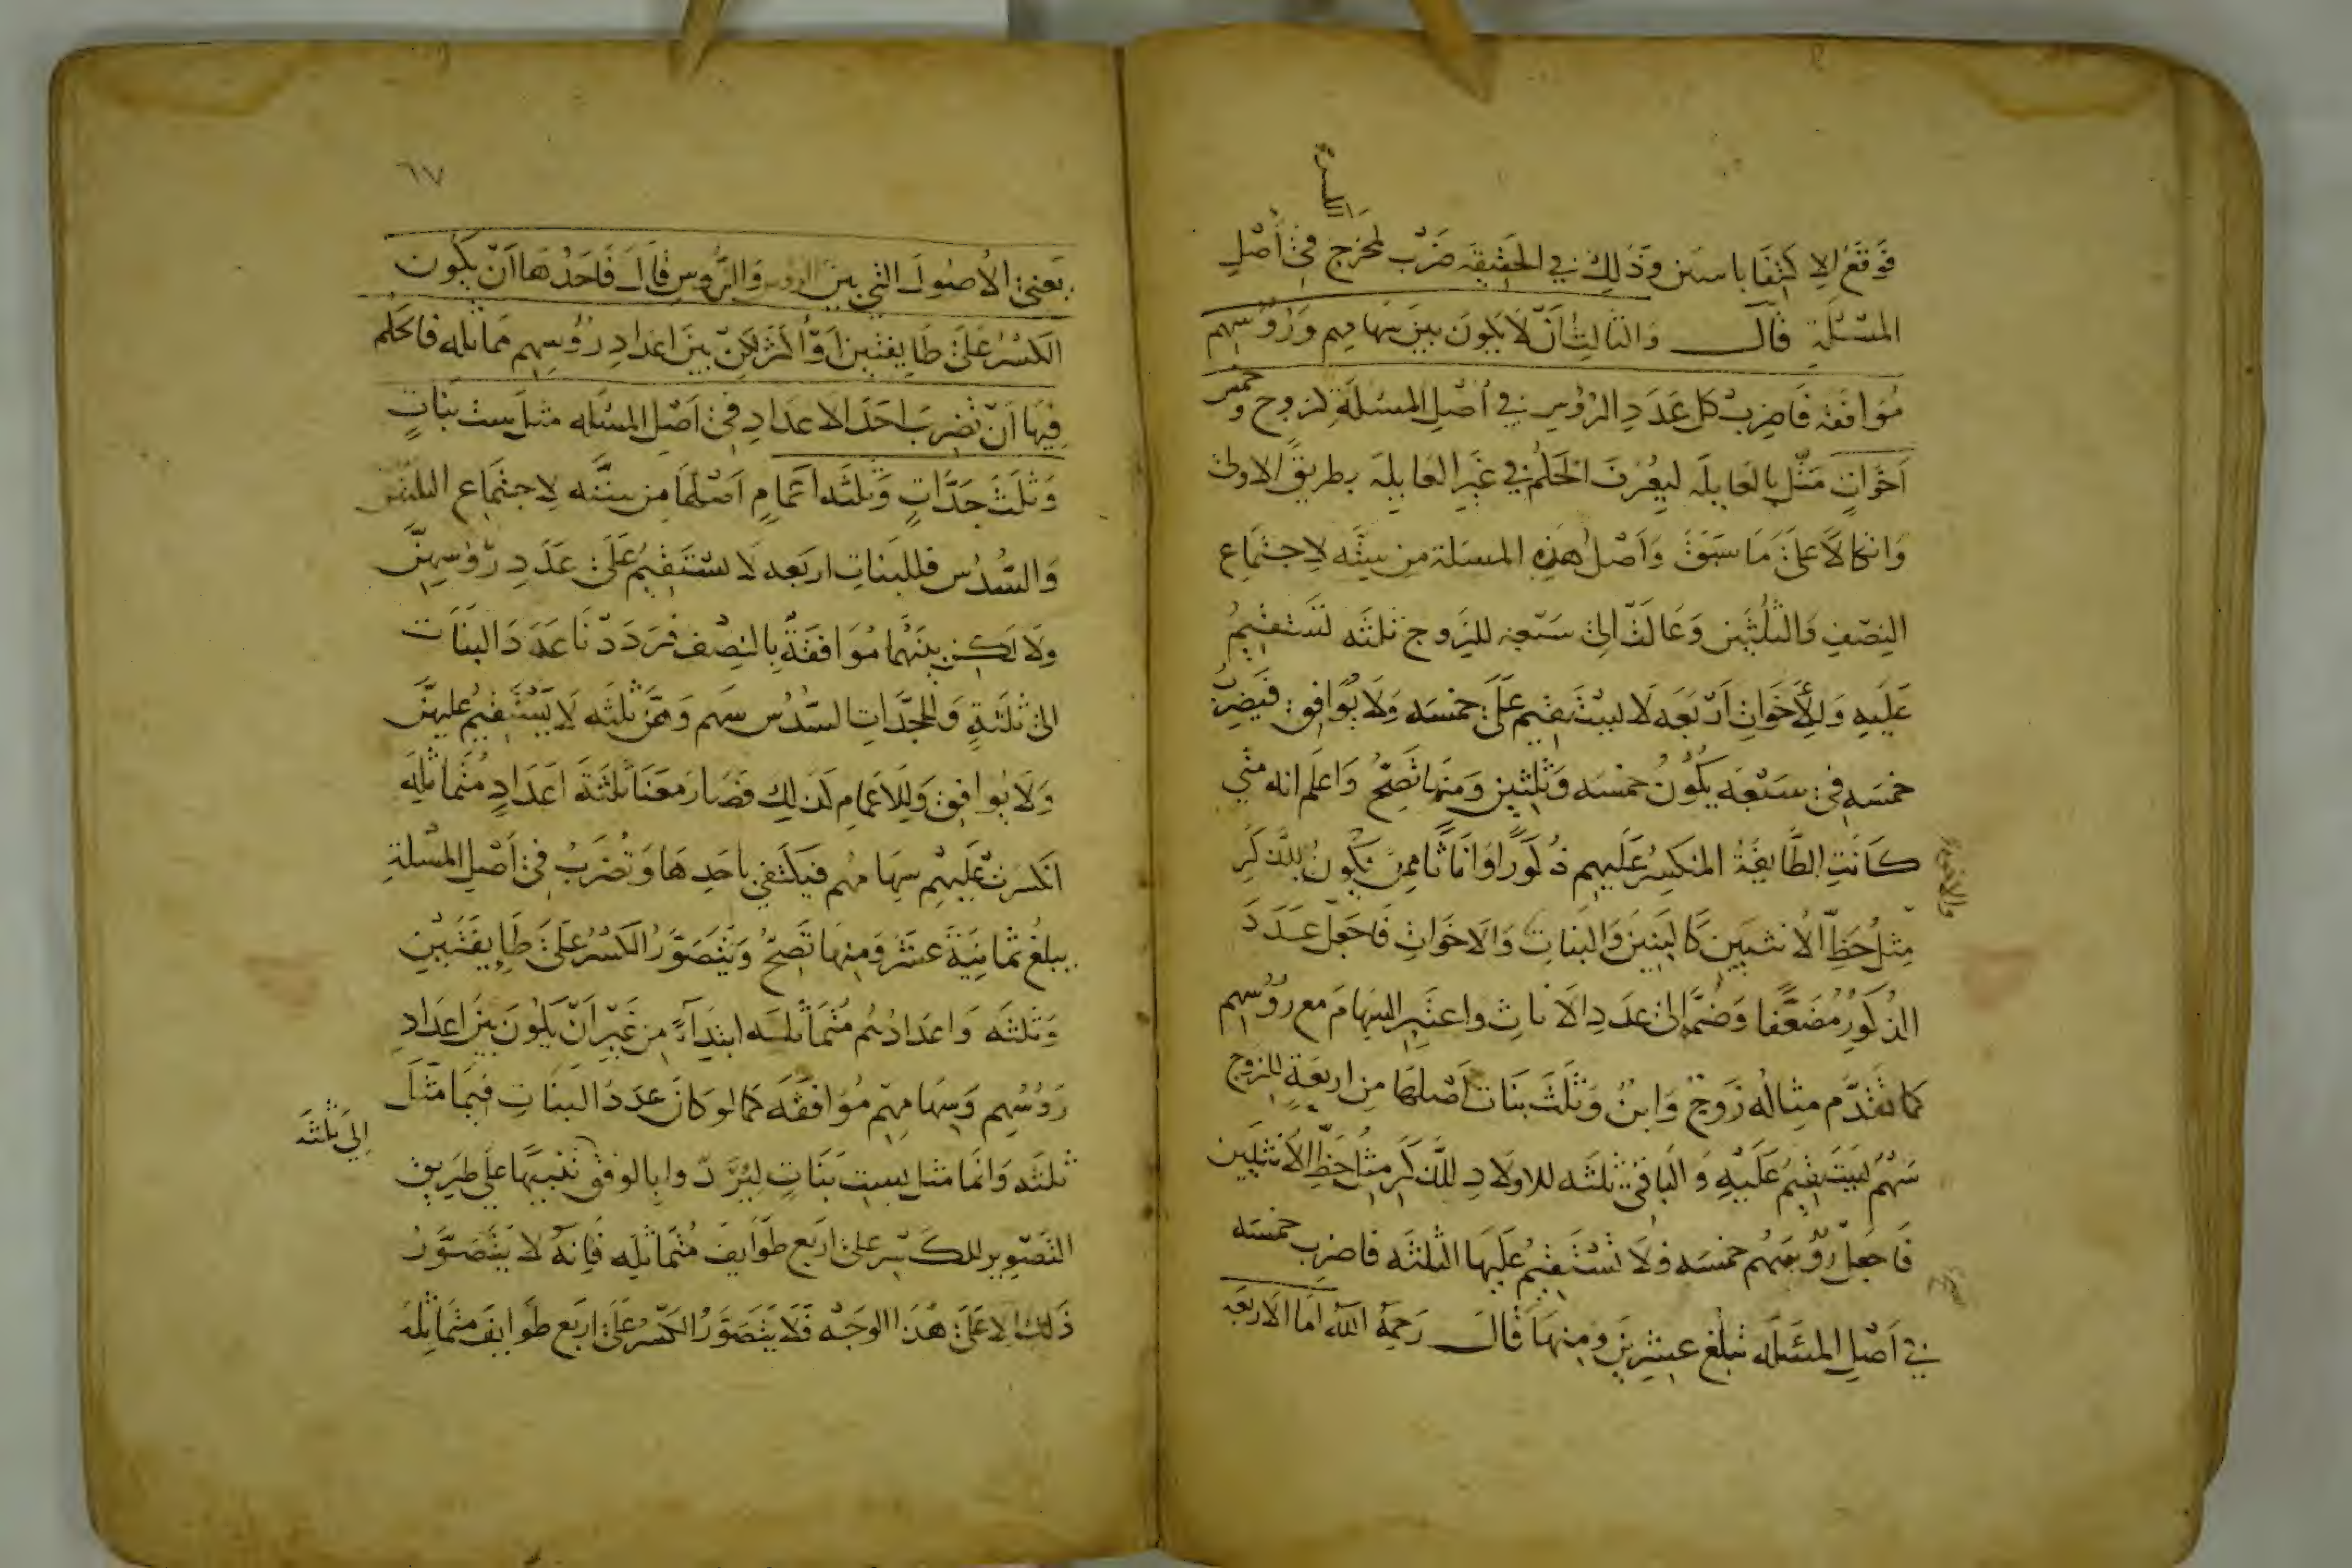 الكسرة
فَوقَعَ الاِ كتِفَا باسنين وَذلِكَ في الحَقيقَه ضَرْب لمخرَج فِىْ أَصْلِ
المَسْئَلَةِ قَالَ وَالثالِثُ أَنْ لَا يَكونَ بينَ سِهَامِهِم وَرُؤُسِهِم
مُوَافَقَة فَاضرِبْ كل عَدَدِ الرُؤسِ في أَصْلِ المَسْئَلَةِ كزوج وخمس
اَخَوَاتٍ مَثَّل بالعَايلَه ليُعْرَفَ الحُكمُ في غَيرِ العَايلَه بطريق الاولىٰ
وَاتكالًا عَلىٰ مَا سَبَقَ وَاَصْلُ هٰذِهِ المسئلة مِن ستَّه لاِجتمَاع
النِصْفِ وَالثلثَين وَعَالَتْ الىٰ سَبْعه للزَوج ثلثَه تَسْتَقيمُ
عَلَيهِ وَلِلْأَخَوَاتِ اَرْبَعَه لَا يستَقيم عَلىٰ خمسَه وَلَا يُوَافِق فَيَضرِبُ
خمسَه فىْ سَبْعَه يَكُونُ خمسَه وَثلثين وَمنهَا تَصِحُّ وَاعلَم انه متي
كَانَتِ الطَّايفَةُ المنكسِرُ عَلَيهِم ذُكورًا وَاِنَاثًا مِمن يَكونُ للذكَرِ
مِثلُ حَظِّ الاُنثيَين كَالبَنِينَ وَالبَنَاتِ وَالاَخوَاتِ فَاجعَلْ عَدَدَ
الذُكورِ مُضَعَّفًا وَضُمَّهُ اِلىٰ عَدَدِ الاَناثِ وَاعتَبِرِ السِهَامَ مع رؤُسِهِم
كما تقَدَّم مِثالُه زَوجٌ وَابنٌ وَثلثَ بَنَات اَصْلهَا مِن اربعَةٍ للزوج
سَهْمٌ يَستَقيمُ عَلَيْهِ وَالبَاقىْ ثلثَه للاولَادِ للذَّكرِ مثلُ حَظِّ الأُنثيَين
فَاجعَلْ رؤُسَهُم خمسَه وَلَا تَسْتَقيمُ عَلَيهَا الثلثَه فاضرِب خمسَه
في اَصْلِ المسْئَله تبلغ عشرِينَ وَمنهَا قَالَ رَحمَهُ اللّه اَما الاَربَعَه
٦٧
يَعني الاُصُولَ التي بَينَ الرؤس وَالرُؤسِ قَالَ فَاَحَدُهَا اَنْ يَكُونَ
الكَسْرُ عَلىٰ طَايفتَين اَوْ أكثَر لكِنْ بينَ اعدَادِ رؤُسِهِم مماثله فالحكم
فِيْهَا اَنْ تضرِبَ احَدَ الاعدَادِ فىْ اَصْلِ المَسْئَله مثل ست بَنَاتٍ
وَثلثَ جَدَّاتٍ وَثلثَه اَعْمَامٍ اَصْلهَا مِن ستَّه لاِجتمَاع الثلثين
وَالسُدُس فللبَنَاتِ اربَعه لَا تسْتَقيمُ عَلىٰ عَدَدِ رؤُسِهِنَّ
وَلَاكِن بينَهُما مُوَافقَةٌ بِالنِصْفِ فرَدَدْنَا عَدَدَ البَنَاتِ
الىٰ ثلثَةٍ وَللجَدَّاتِ السُّدُس سَهم وَهُنَّ ثلثَه لَا يَسْتَقيمُ عليهنَّ
وَلَا يُوَافِق وَللاَعمَام كَذلِكَ فصَارَ مَعَنَا ثلثَةَ اعدَادٍ مُتَماثلَه
انكسَرتْ عَلَيهِم سِهَامُهُم فيَكتَفي باَحَدِهَا وَتُضرَبُ فىْ اَصْلِ المَسْئلةِ
يبلغُ ثمانيَةَ عشَرَ وَمنهَا تَصِحُّ وَيتَصَوَّرُ الكَسْرُ عَلىٰ طَايفتَينِ
وَثلثَه وَاعدَادُهُم مُتَمَاثلَه ابتدَآءً مِن غَيرِ اَنْ يَكونَ بينَ اعدَادِ
رَؤُسِهِم وَسِهَامِهِم مُوَافَقَه كما لو كَانَ عدَدُ البنَاتِ فيمَا مَثلَ
ثلثَه وَانمَا مَثل بسِت بَنَاتٍ ليُرَدَّ وا بالوفق تَنبيهًا عَلى طَريقِ
اِلي ثلثَه
التَصْوِير للكَسْر عَلىٰ اربَع طَوَايفَ مُتَماثلَه فَاِنهُ لَا يتَصَوَّرُ
ذَلِكَ الا عَلىٰ هٰذَا الوَجْه فلَا يتَصَوَّرُ الكَسْرُ عَلىٰ اربَع طوَايفَ متمَاثلَه